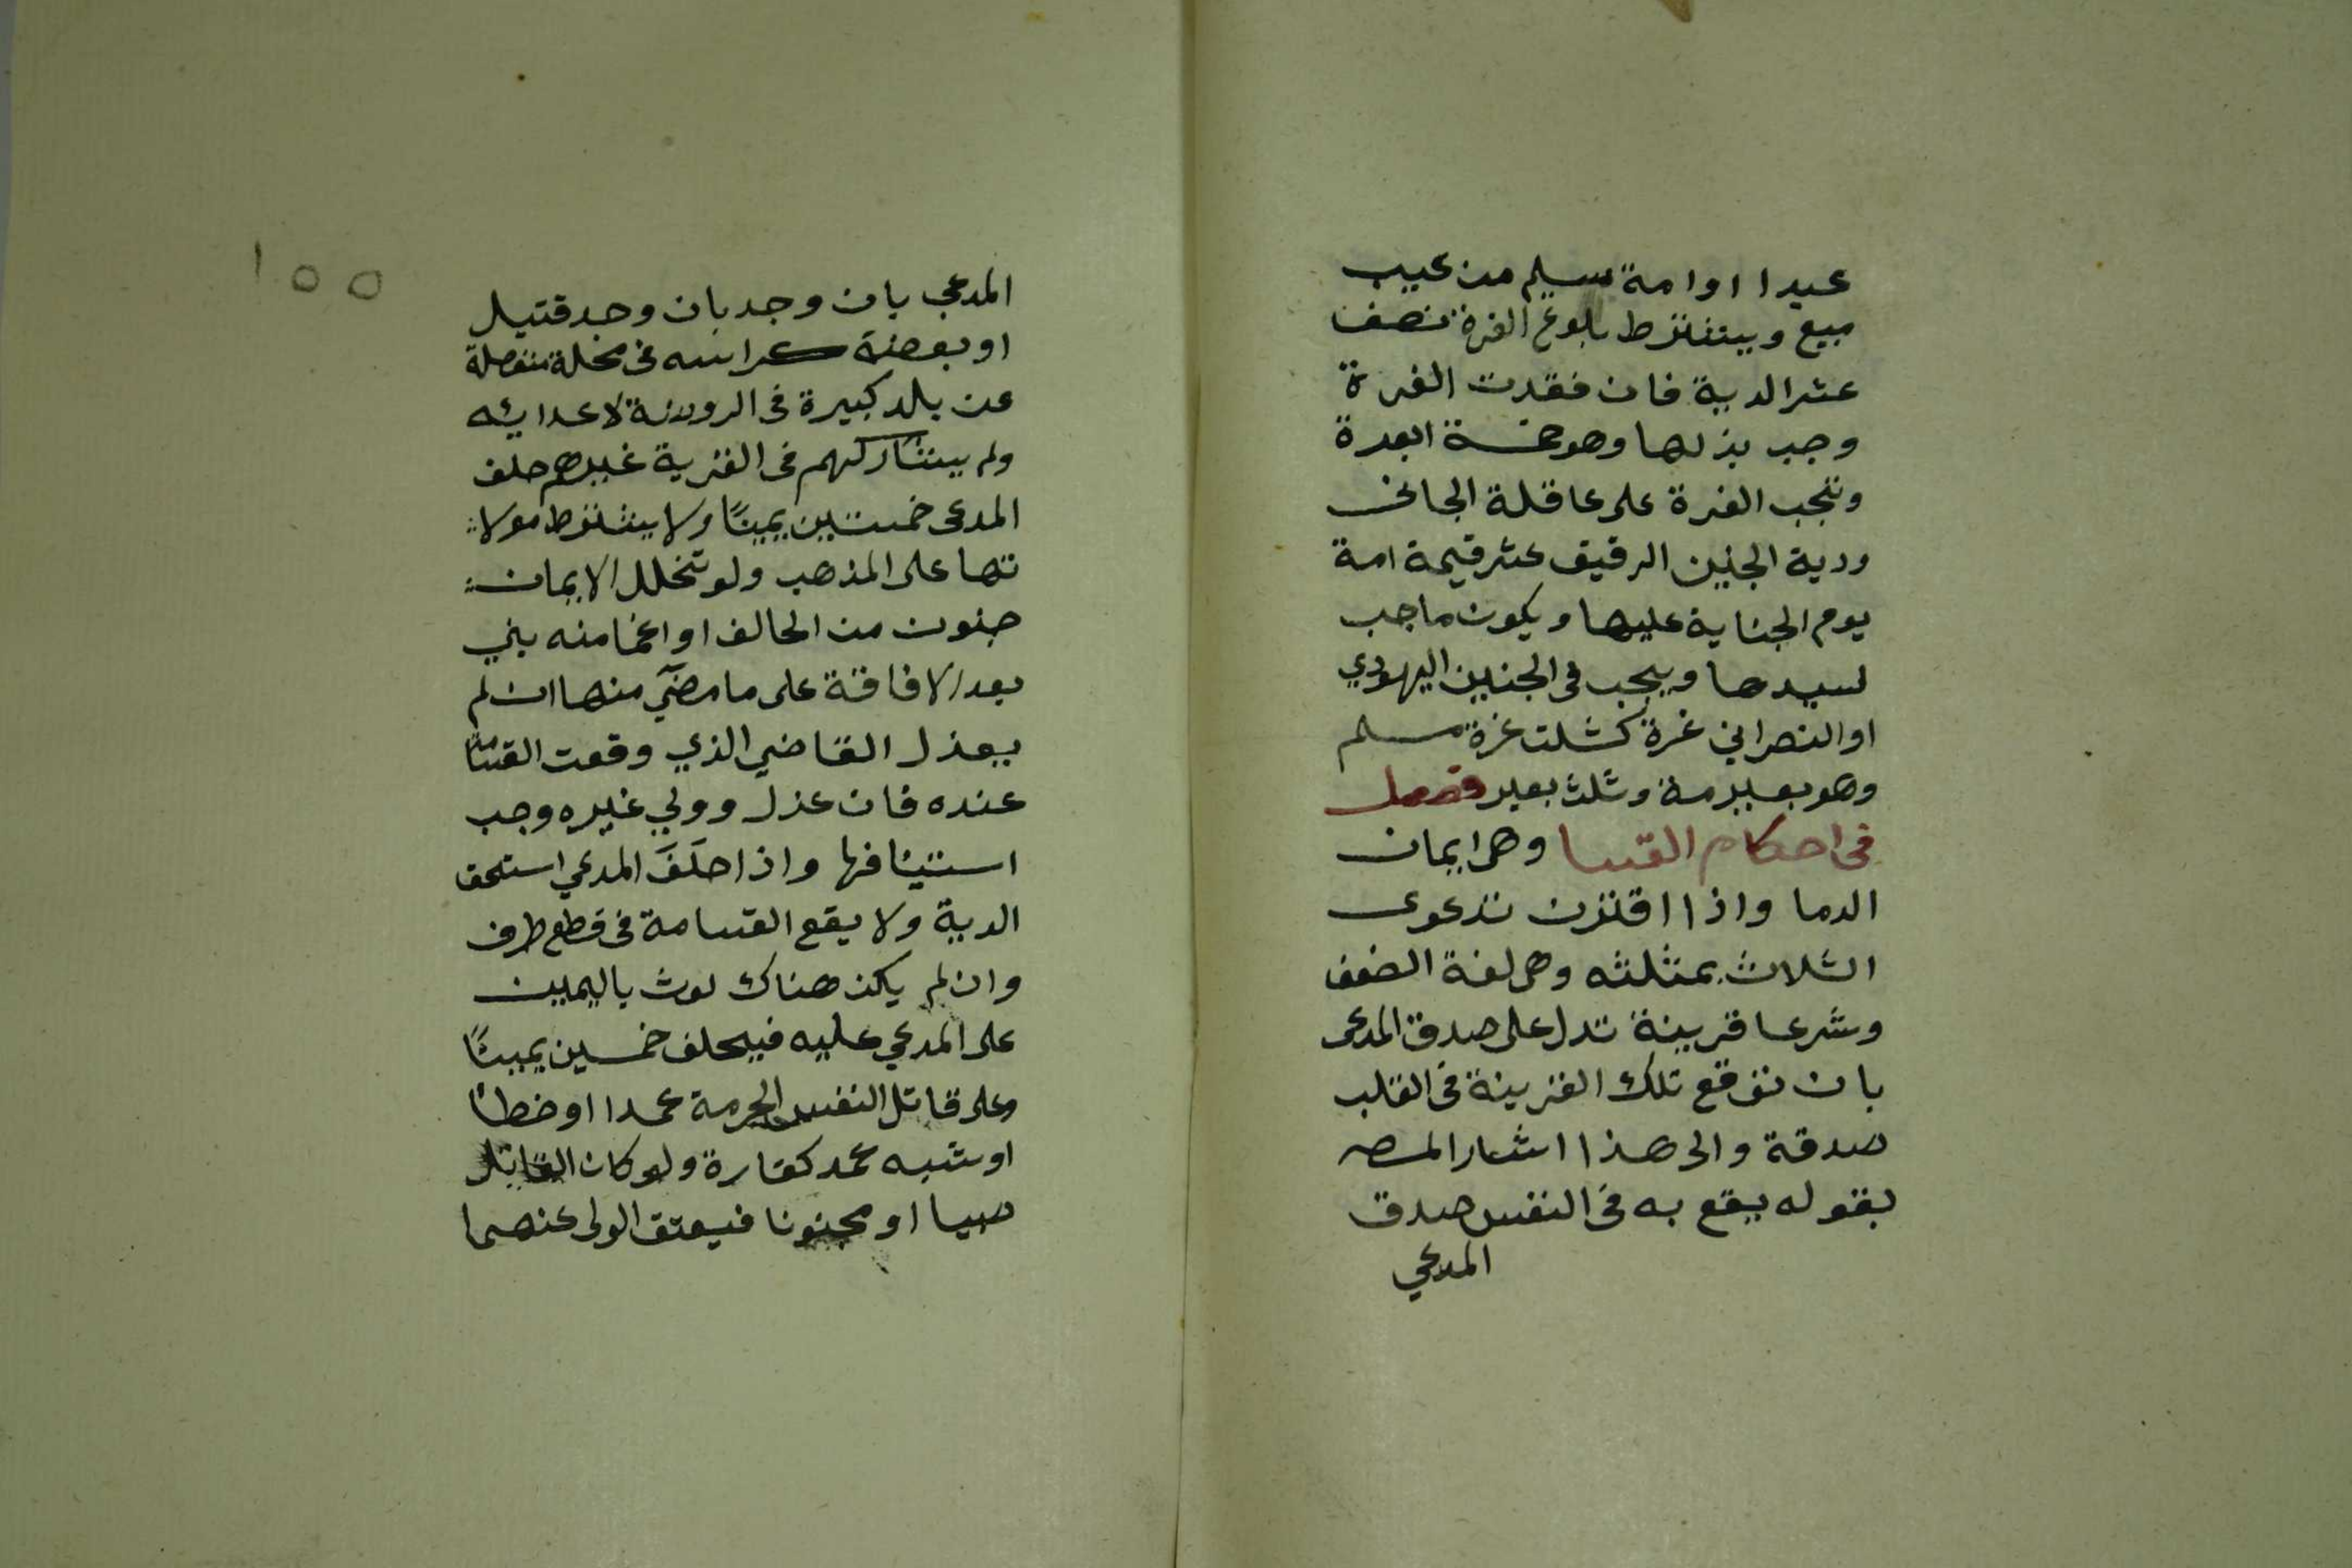 عبدا او امة سليم من عيب
مبيع ويشترط بلوغ الغرة نصف
عشر الدية فان فقدت الغرة
وجب بذلها وهو خمسة ابعرة
وتجب الغرة على عاقلة الجانى
ودية الجنين الرقيق عشر قيمة امة
يوم الجناية عليها ويكون ماجب
لسيدها ويجب فى الجنين اليهودي
او النصراني غرة كثلث غرة مسلم
وهو بعير مة وثلث بعير فصل
فى احكام القسا وهى ايمان
الدما واذا اقترن ندعوى
الثلاث بمثلثه وهى لغة الضعف
وشرعا قرينة تدل على صدق المدعى
بان توقع تلك القرينة فى القلب
صدقة والى هذا اشار المصـ
بقوله يقع به فى النفس صدق
المدعي
١٥٥
المدعي بان وجد بان وجد قتيل
او بعضة كراسه فى محلة منفصلة
عن بلد كبيرة فى الروضة لاعدائه
ولم يشاركهم فى القرية غيرهم حلف
المدعى خمسين يمينًا ولا يشترط مولا
تها على المذهب ولو تخلل الايمان
جنون من الحالف او اغما منه بني
بعد الافاقة على ما مضي منها ان لم
يعزل القاضي الذي وقعت القسامة
عنده فان عزل وولي غيره وجب
استيئافها واذا حلَفَ المدعي استحق
الدية ولا يقع القسامة فى قطع طرف
وان لم يكن هناك لوث باليمين
على المدعي عليه فيحلف خمسين يمينًا
وعلى قاتل النفس المحرمة عمدا او خطأ
او شبه عمد كفارة ولو كان القاتل
صبيا او مجنونا فيعتق الولى عنهما